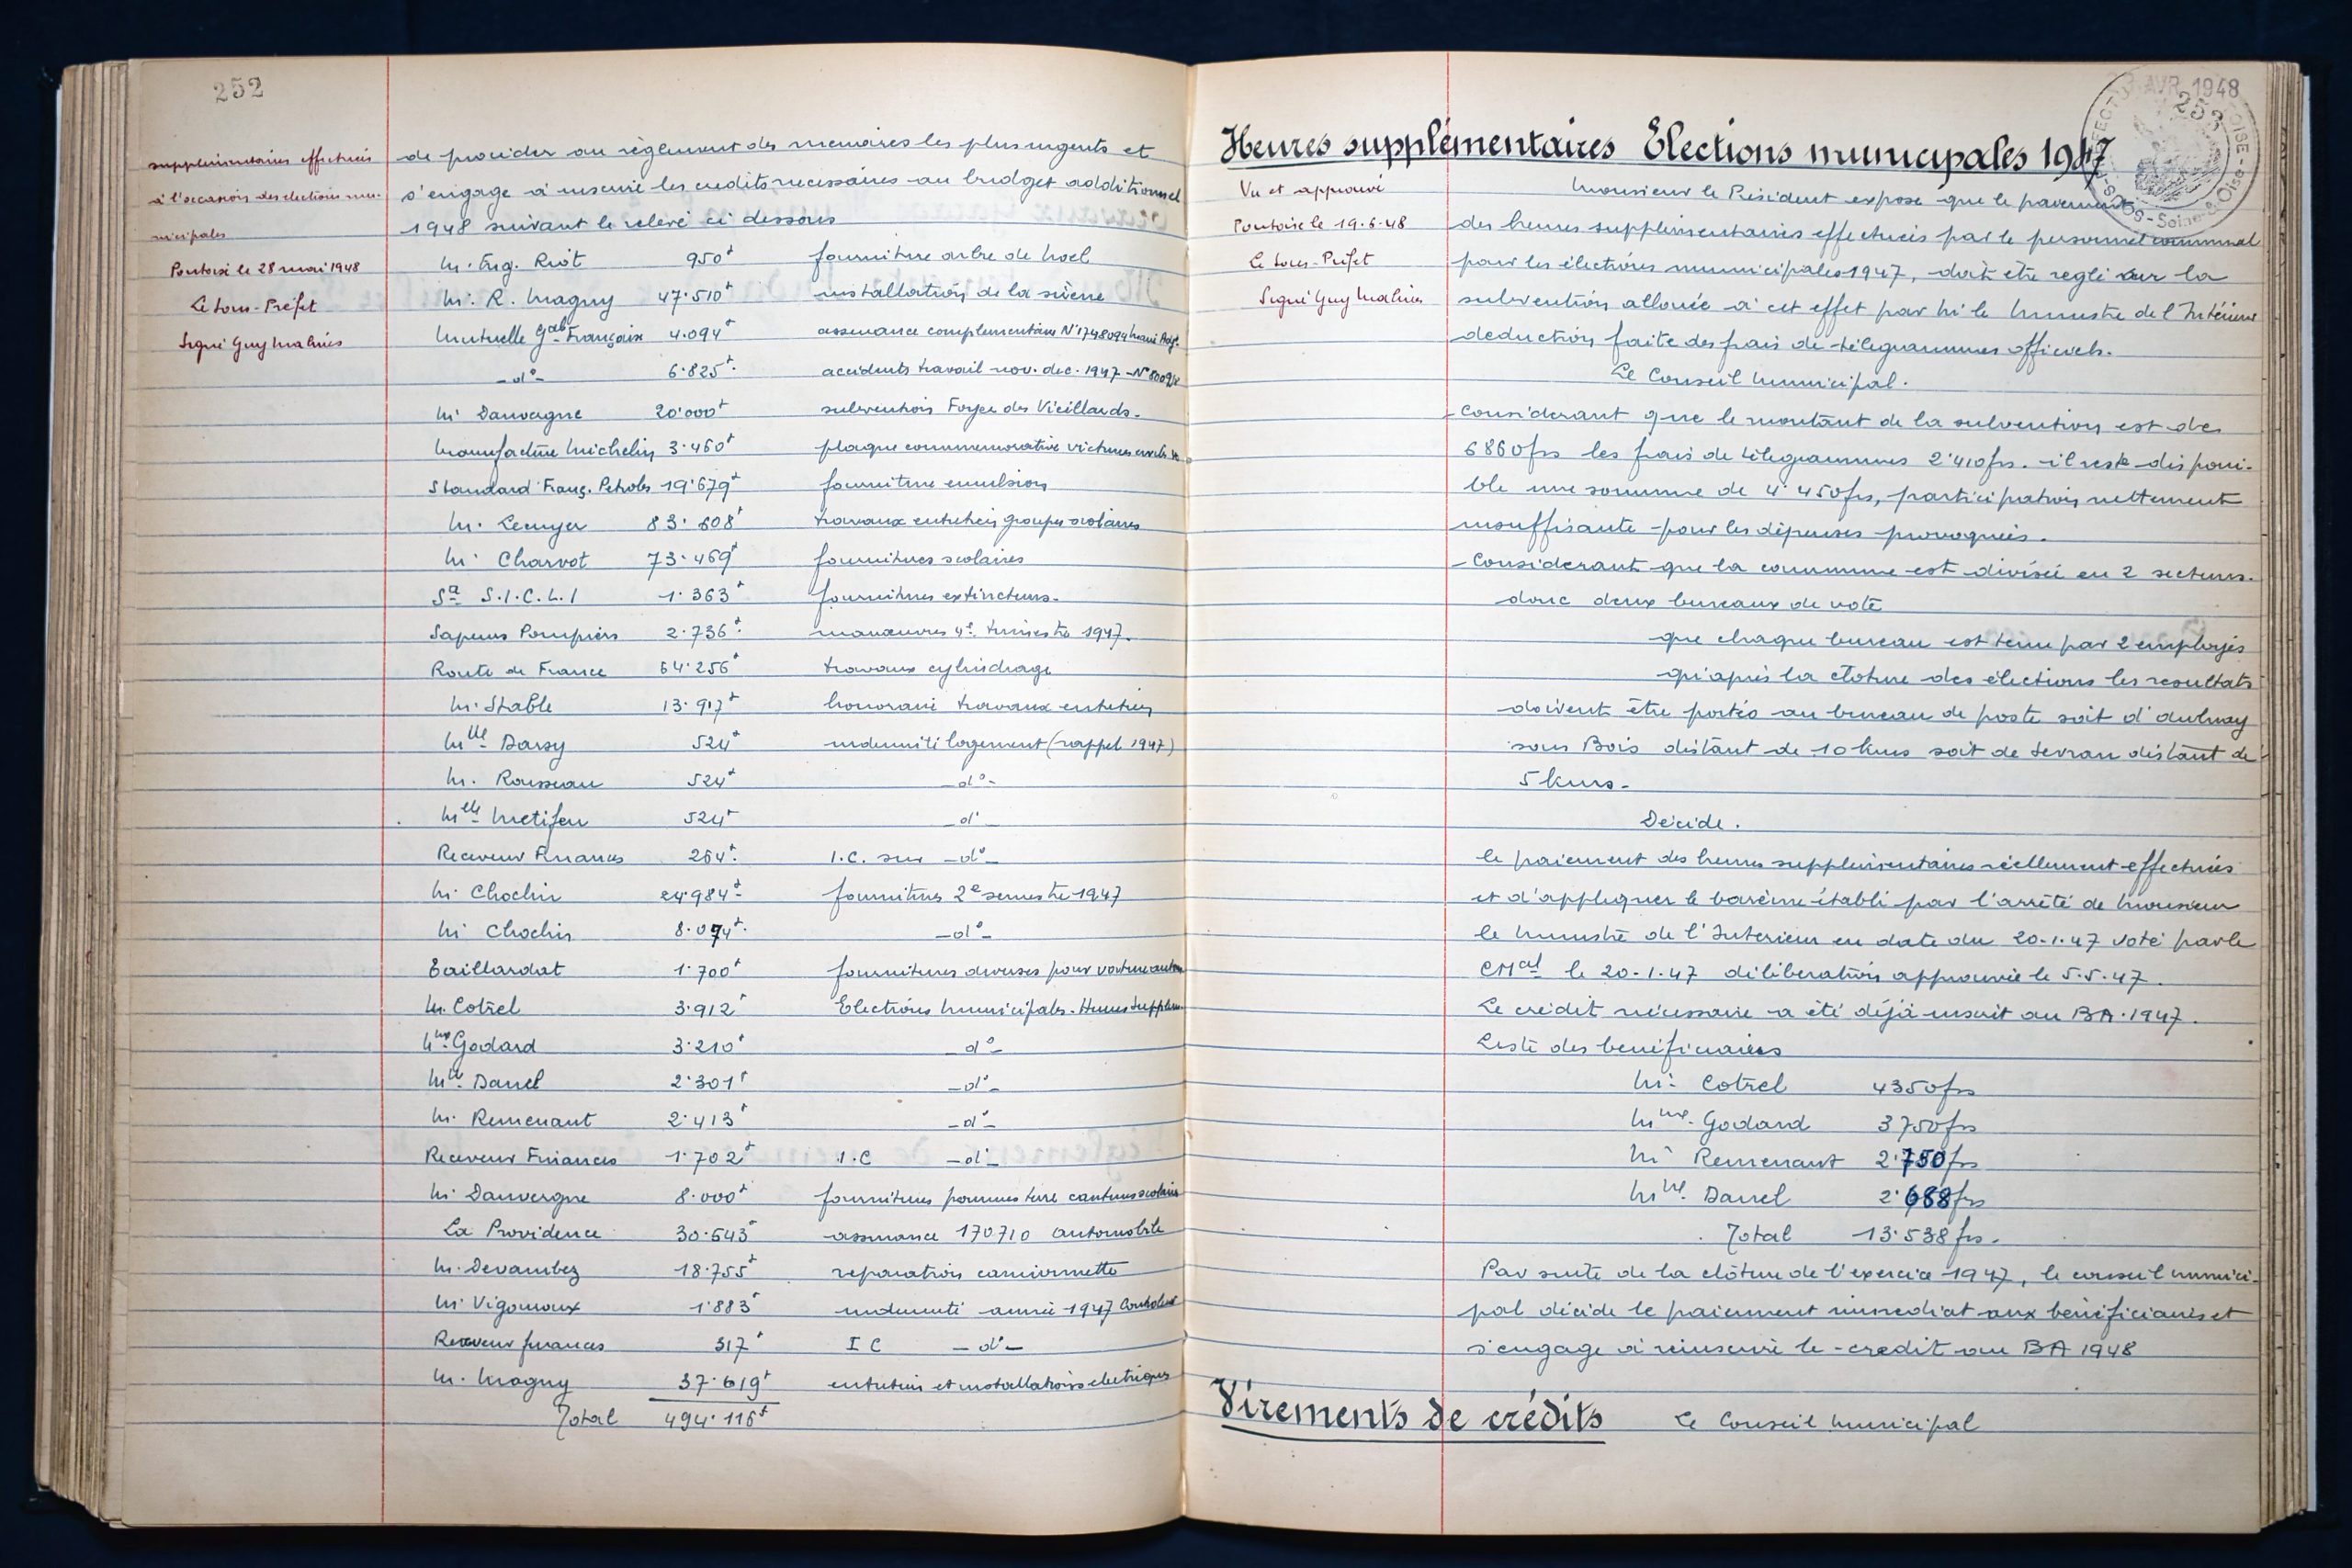 252
supplémentaires effectuées
à l'occasion des élections mu-
nicipales
Pontoise le 28 mai 1948
Le Sous-Préfet
Signé Guy Malines
de procéder au règlement des mémoires les plus urgents et
s'engage à inscrire les crédits nécessaires au budget additionnel
1948 suivant le relevé ci dessous
M. Eug. Riot 950f fourniture arbre de Noel
M. R. Magny 47.510f installation de la sirène
Mutuelle Gale Française 4.094f assurance complémentaire N°1748094
-d°- 6.825f accidents travail nov. dec. 1947
M. Dauvergne 20.000f subvention Foyer des Vieillards.
Manufacture Michelin 3.460f plaque commemorative victimes
Standard Franç. Petroles 19.679f fourniture emulsion
M. Lemyer 83.608f travaux entretien groupes scolaires
M. Charvot 73.469f fournitures scolaires
Sté S.I.C.L.I 1.363f fournitures extincteurs.
Sapeurs Pompiers 2.736f manœuvres 4e trimestre 1947.
Route de France 64.256f travaux cylindrage
M. Stable 13.917f honoraire travaux entretien
Mlle Darsy 524f indemnité logement (rappel 1947)
M. Rousseau 524f -d°-
Mlle Metifeu 524f -d°-
Receveur Finances 264f I.C. sur -d°-
M. Chochin 24.984f fournitures 2e semestre 1947
M. Chochin 8.074f -d°-
Taillardat 1.700f fournitures diverses pour voiture
M. Cotrel 3.912f Elections Municipales. Heures Supplem.
Mme Godard 3.210f -d°-
Mlle Danel 2.301f -d°-
M. Remenant 2.413f -d°-
Receveur Finances 1.702f I.C -d°-
M. Dauvergne 8.000f fournitures pommes terre cantines scolaires
La Providence 30.543f assurance 170710 automobile
M. Devambez 18.755f reparation camionnette
M. Vigouroux 1.883f indemnité année 1947
Receveur finances 317f I C -d°-
M. Magny 37.619f entretien et installations électriques
Total 494.116f
AVR 1948
253
Heures supplémentaires Elections municipales 1947
Vu et approuvé
Pontoise le 19.6.48
Le Sous-Préfet
Signé Guy Malines
Monsieur le Président expose que le paiement
des heures supplémentaires effectuées par le personnel communal
pour les élections municipales 1947, doit être réglé sur la
subvention allouée à cet effet par M. le Ministre de l'Intérieur
déduction faite des frais de télégrammes officiels.
Le Conseil Municipal.
- Considérant que le montant de la subvention est de
6860frs les frais de télégrammes 2.410frs. il reste disponi-
ble une somme de 4.450frs, participation nettement
insuffisante pour les dépenses provoquées.
- Considérant que la commune est divisée en 2 secteurs.
donc deux bureaux de vote
que chaque bureau est tenu par 2 employés
qu'après la clôture des élections les resultats
doivent être portés au bureau de poste soit d'Aulnay
sous Bois distant de 10 kms soit de Sevran distant de
5 kms.
Décide.
le paiement des heures supplémentaires réellement effectuées
et d'appliquer le barème établi par l'arrêté de Monsieur
le Ministre de l'Interieur en date du 20.1.47 voté par le
CMal le 20.1.47 délibération approuvée le 5.5.47.
Le crédit nécessaire a été déjà inscrit au BA.1947.
Liste des beneficiaires
M. Cotrel 4350frs
Mme Godard 3750frs
M. Remenant 2.750frs
Mlle Danel 2.688frs
Total 13.538frs.
Par suite de la clôture de l'exercice 1947, le conseil munici-
pal décide le paiement immédiat aux bénéficiaires et
s'engage à réinscrire le crédit au BA 1948
Virements de crédits Le Conseil Municipal